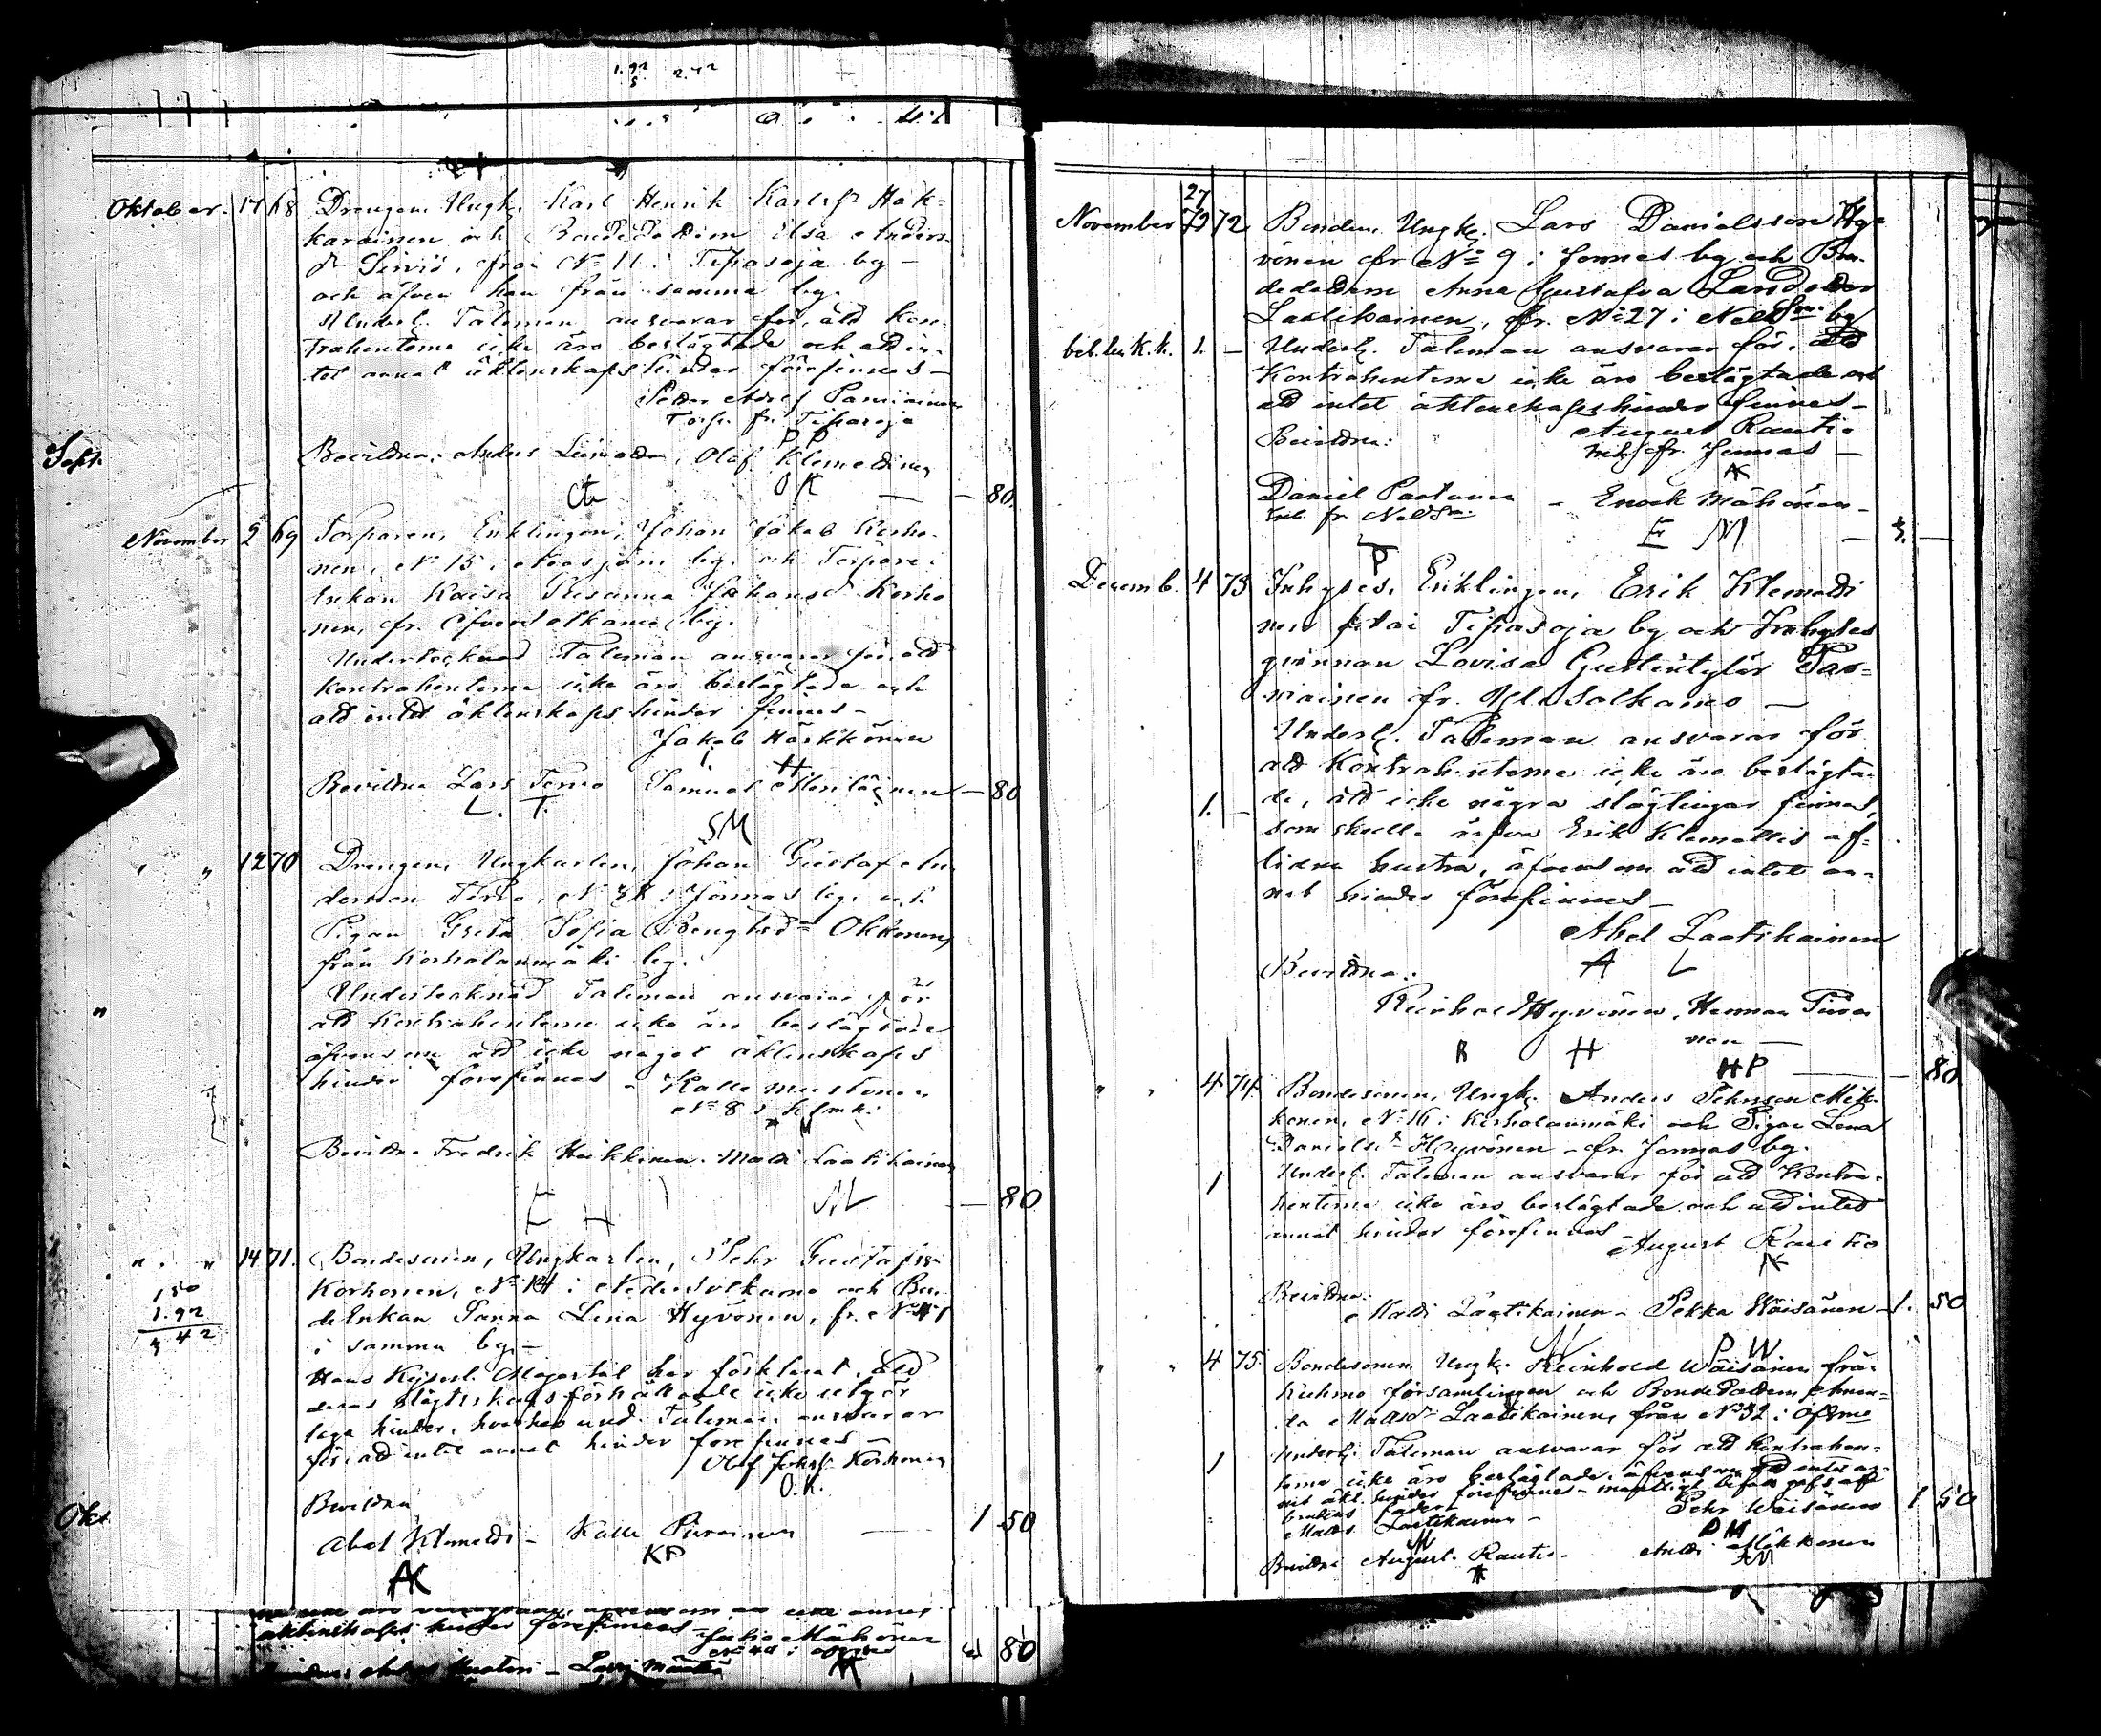 1.92 2.42
5
Oktober 17 68 Drengen Ungk. Karl Henrik Karlss. Hak=
karainen och Bondedottern Elsa Anders
dr Sirviö, från No 11 i Tipasoja by -
och äfven han från samma by.
Undert. Taleman ansvarar för, att kon-
trahenterne icke äro beslägtade och att in-
tet annat äktenskapshinder förefinnes -
Petter Adolf
Torp. fr. Tipasoja
P P
Sept.
Bevittna: Anders Olof Klemettinen
O K - 80.
November 9 69 Torparen, Enklingen, Johan Jakob Korho-
nen, No 15 i by och Torpare-
Enkan Kaisa Susanna Johansd Korho
nen, fr. Öfversotkamo by.
Undertecknad Taleman ansvarar för att
kontrahenterne icke äro beslägtade och
att intet äktenskapshinder finnes -
Jakob Härkkönen
I H
Bevittna Lars Tervo Samuel Meriläinen - 80
L. T.
SM
" " 12 70 Drengen, Ungkarlen, Johan Gustaf An
dersson Tervo, No i Jormas by och
Pigan Greta Sofia Bengtsdr Okkonen
från Korholanmäki by.
Undertecknad Taleman ansvarar för
att kontrahenterne icke äro beslägtade
äfvensom att icke något äktenskaps
hinder förefinnes - Kalle Mustonen
No 8 i K.lmk.
K M
Bevittna Fredrik Heikkinen. Matti Laatikainen
F H ML - 80
" " 14 71. Bondesonen, Ungkarlen, Pehr Gustafss
Korhonen, No 14 i Nedersotkamo och Bon-
deEnkan Sanna Lena Hyvönen, fr. No 41
i samma by -
150
1.92
3 42
Hans Kejserl. Majestät har förklarat, att
deras slägtskapsförhållande icke utgör
laga hinder, hvarhos und. Taleman ansvarar
för att intet annat hinder förefinnes -
Olof Johss. Korhonen
O.K.
Okt.
Bevittna
Abel Klemetti - Kalle Piirainen 1 50
AK KP
äktenskaps hinder förefinnes - Juho Mähönen
80
27
November 72 Bonden, Ungk. Lars Danielsson Hy-
vönen fr No 9 i Jormas by och Bon-
dedottern Anna Gustafva Larsdotter
Laatikainen, fr. No 27 i Ned Sm. by
bet. til k.k. 1. - Undert. Taleman ansvarar för, att
Kontrahenterne icke äro beslägtade och
att intet äktenskapshinder finnes -
Bevittna: August Rautio
fr. Jormas -
A
Daniel Partanen - Enock Mähönen -
fr Ned Sm. E M - 3. -
D P
Decemb. 4 73 Inhyses, Enklingen, Erik Klemetti
nen från Tipasoja by och Inhyses
qvinnan Lovisa Gustintytär Par-
viainen fr. Ned Sotkamo -
Undert. Taleman ansvarar för
att Kontrahenterne icke äro beslägta-
1. - de, att icke några slägtingar finnas,
som skulle ärfva Erik Klemettis af-
lidna hustru, äfvensom att intet an-
nat hinder förefinnes -
Abel Laatikainen
A L
Bevittna:
Reinhold Hyvönen, Herman Piirai
nen -
R H HP - 80
" " 4 74. Bondesonen, Ungk. Anders Pehrsson Mik-
konen, No 16 i Korholanmäki och Pigan Lena
Danielsdr Hyvönen - fr. Jormas by.
1 Undert. Taleman ansvarar för att Kontra-
henterne icke äro beslägtade och att intet
annat hinder förefinnes
August Rautio
A
Bevittna:
Matti Laatikainen - Pekka Väisänen - 1. 50
M P W
" " 4 75. Bondesonen, Ungk. Reinhold Wäisänen från
Kuhmo församlingen och Bondedottern Aman-
da Mattsdr Laatikainen, från No 32 i Öfsmo
1 Undert. Taleman ansvarar för att kontrahen-
terne icke äro beslägtade, äfvensom att intet an-
nat äkt. hinder förefinnes - muntligt bifall gafs af
brudens fader Pehr Wäisänen 1 50
Matts Laatikainen -
M P W
Bevittna August Rautio - Antti Mikkonen
A AM